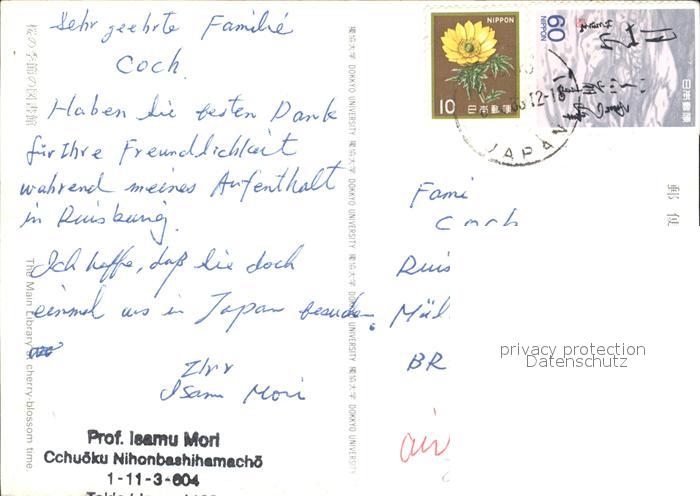 Sehr geehrte Familie
Coch.
Haben Sie besten Dank
für Ihre Freundlichkeit
während meines Aufenthalt
in Duisburg.
Ich hoffe, daß Sie doch
einmal uns in Japan besuchen.
Ihr
Isamu Mori
Prof. Isamu Mori
Cchuōku Nihonbashihamachō
1-11-3-604
桜の季節の図書館
The Main Library in cherry-blossom time.
獨協大学 DOKKYO UNIVERSITY 獨協大学 DOKKYO UNIVERSITY 獨協大学 DOKKYO UNIVERSITY 獨協大学 DOKKYO UNIVERSITY 獨協大学 DOKKYO UNIVERSITY
NIPPON
10
日本郵便
60
NIPPON
日本郵便
JAPAN
郵便
Fami
Duis
Mül
BR
air
privacy protection
Datenschutz